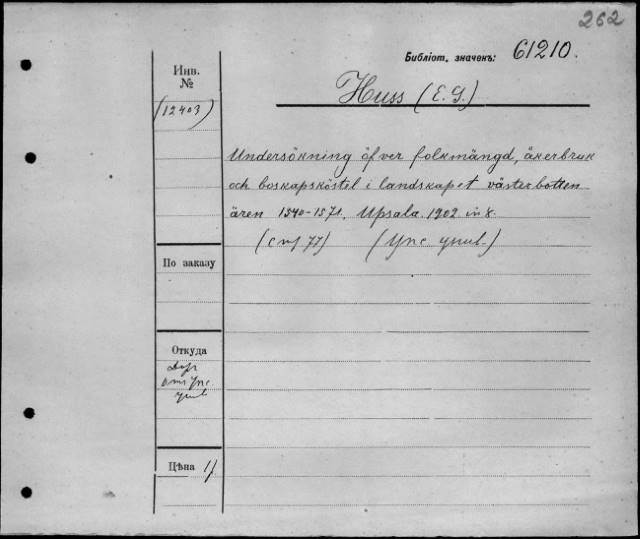 262
Библіот. значекъ: 61210.
Инв.
№
Huss (E. G.)
(12403)
Undersökning öfver folkmängd, åkerbruk
och boskapsköstel i landskapet västerbotten
åren 1540-1571. Upsala. 1902 in 8.
(стр 77) (Упс унив.)
По заказу
Откуда
Дар
от Упс
унив
Цѣна 1